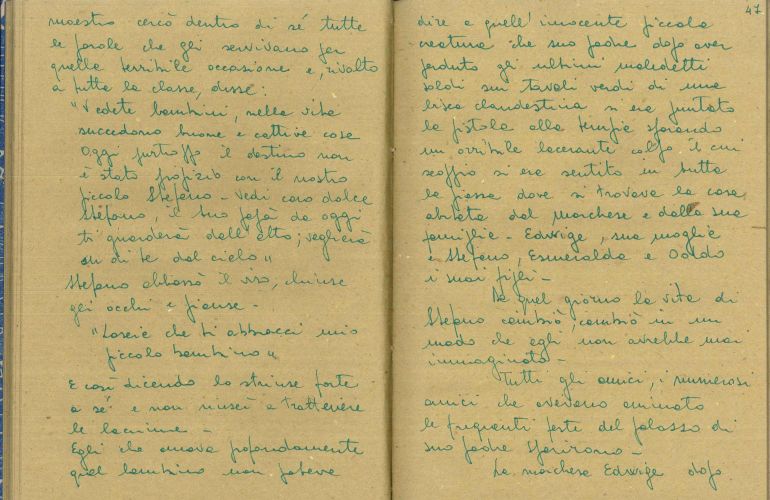 maestro cercò dentro di sé tutte
le parole che gli servivano per
quella terribile occasione e, rivolto
a tutta la classe, disse:
"Vedete bambini, nella vita
succedono buone e cattive cose
Oggi purtroppo il destino non
è stato propizio con il nostro
piccolo Stefano - Vedi caro dolce
Stefano, il tuo papà da oggi
ti guarderà dall'alto; veglierà
su di te dal cielo"
Stefano abbassò il viso, chiuse
gli occhi e pianse -
"Lascia che ti abbracci mio
piccolo bambino"
E così dicendo lo strinse forte
a sé e non riuscì a trattenere
le lacrime -
Egli che amava profondamente
quel bambino non poteva
47
dire a quell'innocente piccola
creatura che suo padre dopo aver
perduto gli ultimi maledetti
soldi sui tavoli verdi di una
bisca clandestina si era puntato
la pistola alla tempia sparando
un orribile lacerante colpo il cui
scoppio si era sentito in tutta
la piazza dove si trovava la casa
abitata dal marchese e dalla sua
famiglia - Edwige, sua moglie
e Stefano, Esmeralda e Oddo
i suoi figli -
Da quel giorno la vita di
Stefano cambiò, cambiò in un
modo che egli non avrebbe mai
immaginato -
Tutti gli amici, i numerosi
amici che avevano animato
le frequenti feste del palazzo di
suo padre sparirono -
La marchesa Edwige dopo